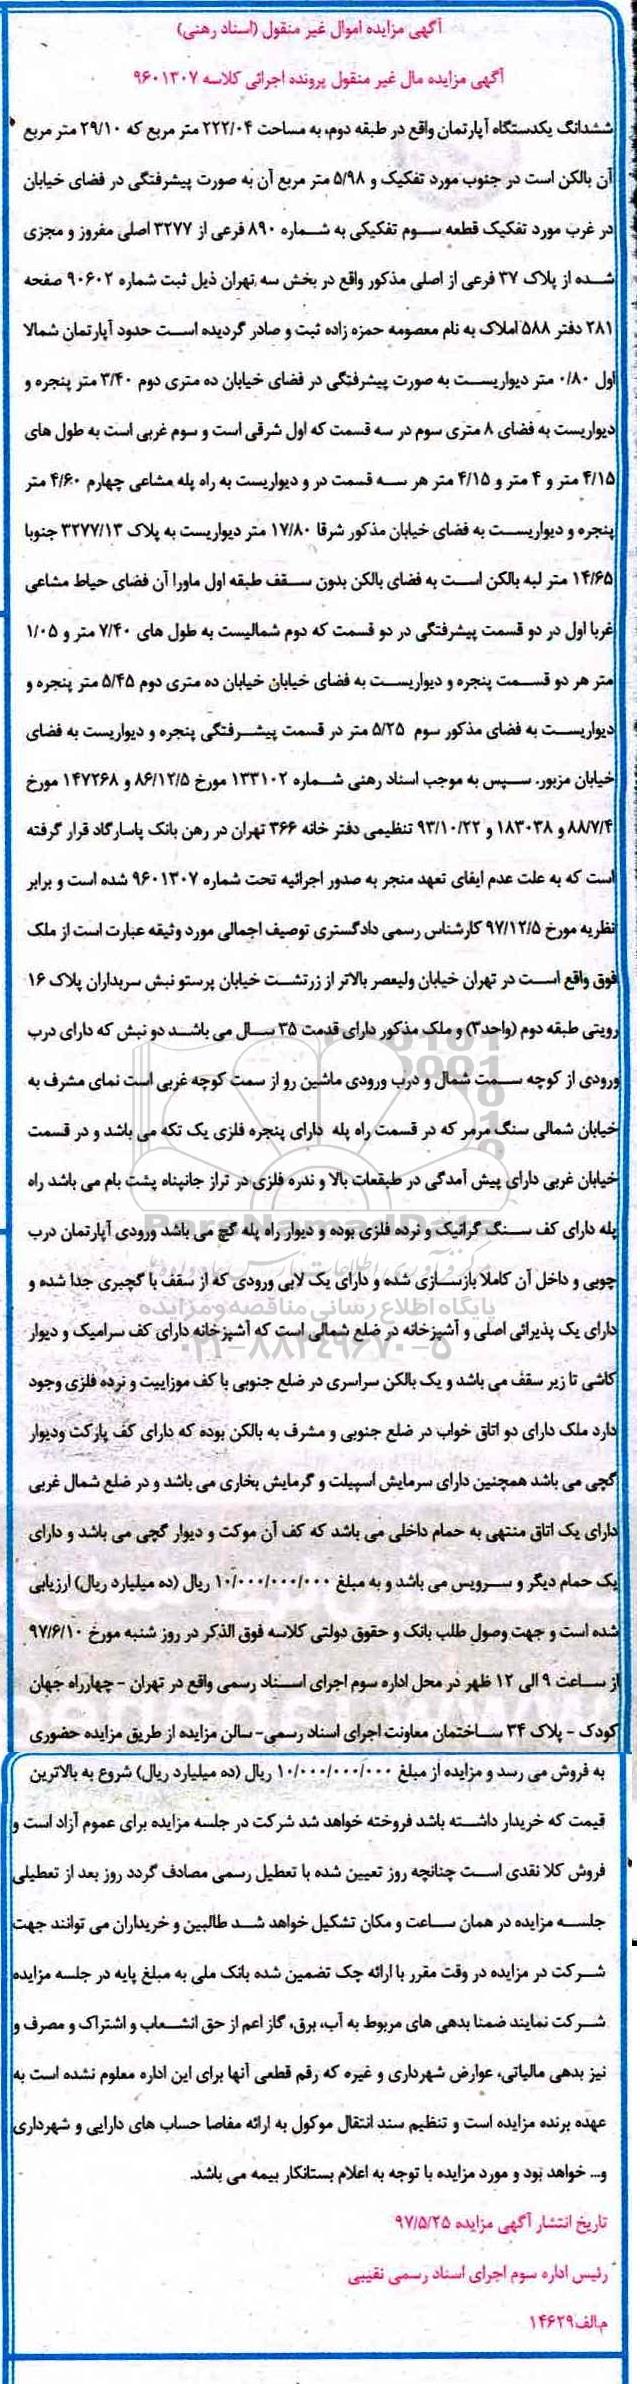 آگهی مزایده اموال غیر منقول (اسناد رهنی)
آگهی مزایده مال غیر منقول پرونده اجرائی کلاسه ۹۶۰۱۳۰۷
ششدانگ یکدستگاه آپارتمان واقع در طبقه دوم، به مساحت ۲۲۲/۰۴ متر مربع که ۲۹/۱۰ متر مربع
آن بالکن است در جنوب مورد تفکیک و ۵/۹۸ متر مربع آن به صورت پیشرفتگی در فضای خیابان
در غرب مورد تفکیک قطعه سوم تفکیکی به شماره ۸۹۰ فرعی از ۳۲۷۷ اصلی مفروز و مجزی
شده از پلاک ۳۷ فرعی از اصلی مذکور واقع در بخش سه تهران ذیل ثبت شماره ۹۰۶۰۲ صفحه
۲۸۱ دفتر ۵۸۸ املاک به نام معصومه حمزه زاده ثبت و صادر گردیده است حدود آپارتمان شمالا
اول ۰/۸۰ متر دیواریست به صورت پیشرفتگی در فضای خیابان ده متری دوم ۳/۴۰ متر پنجره و
دیواریست به فضای ۸ متری سوم در سه قسمت که اول شرقی است و سوم غربی است به طول های
۴/۱۵ متر و ۴ متر و ۴/۱۵ متر هر سه قسمت در و دیواریست به راه پله مشاعی چهارم ۴/۶۰ متر
پنجره و دیواریست به فضای خیابان مذکور شرقا ۱۷/۸۰ متر دیواریست به پلاک ۳۲۷۷/۱۳ جنوبا
۱۴/۶۵ متر لبه بالکن است به فضای بالکن بدون سقف طبقه اول ماورا آن فضای حیاط مشاعی
غربا اول در دو قسمت پیشرفتگی در دو قسمت که دوم شمالیست به طول های ۷/۴۰ متر و ۱/۰۵
متر هر دو قسمت پنجره و دیواریست به فضای خیابان خیابان ده متری دوم ۵/۴۵ متر پنجره و
دیواریست به فضای مذکور سوم ۵/۲۵ متر در قسمت پیشرفتگی پنجره و دیواریست به فضای
خیابان مزبور. سپس به موجب اسناد رهنی شماره ۱۳۳۱۰۲ مورخ ۸۶/۱۲/۵ و ۱۴۷۲۶۸ مورخ
۸۸/۷/۴ و ۱۸۳۰۳۸ و ۹۳/۱۰/۲۲ تنظیمی دفتر خانه ۳۶۶ تهران در رهن بانک پاسارگاد قرار گرفته
است که به علت عدم ایفای تعهد منجر به صدور اجرائیه تحت شماره ۹۶۰۱۳۰۷ شده است و برابر
نظریه مورخ ۹۷/۱۲/۵ کارشناس رسمی دادگستری توصیف اجمالی مورد وثیقه عبارت است از ملک
فوق واقع است در تهران خیابان ولیعصر بالاتر از زرتشت خیابان پرستو نبش سربداران پلاک ۱۶
رویتی طبقه دوم (واحد۳) و ملک مذکور دارای قدمت ۳۵ سال می باشد دو نبش که دارای درب
ورودی از کوچه سمت شمال و درب ورودی ماشین رو از سمت کوچه غربی است نمای مشرف به
خیابان شمالی سنگ مرمر که در قسمت راه پله دارای پنجره فلزی یک تکه می باشد و در قسمت
خیابان غربی دارای پیش آمدگی در طبقعات بالا و ندره فلزی در تراز جانپناه پشت بام می باشد راه
پله دارای کف سنگ گرانیک و نرده فلزی بوده و دیوار راه پله گچ می باشد ورودی آپارتمان درب
چوبی و داخل آن کاملا بازسازی شده و دارای یک لابی ورودی که از سقف با گچبری جدا شده و
دارای یک پذیرائی اصلی و آشپزخانه در ضلع شمالی است که آشپزخانه دارای کف سرامیک و دیوار
کاشی تا زیر سقف می باشد و یک بالکن سراسری در ضلع جنوبی با کف موزاییت و نرده فلزی وجود
دارد ملک دارای دو اتاق خواب در ضلع جنوبی و مشرف به بالکن بوده که دارای کف پارکت ودیوار
گچی می باشد همچنین دارای سرمایش اسپیلت و گرمایش بخاری می باشد و در ضلع شمال غربی
دارای یک اتاق منتهی به حمام داخلی می باشد که کف آن موکت و دیوار گچی می باشد و دارای
یک حمام دیگر و سرویس می باشد و به مبلغ ۱۰/۰۰۰/۰۰۰/۰۰۰ ریال (ده میلیارد ریال) ارزیابی
شده است و جهت وصول طلب بانک و حقوق دولتی کلاسه فوق الذکر در روز شنبه مورخ ۹۷/۶/۱۰
از ساعت ۹ الی ۱۲ ظهر در محل اداره سوم اجرای اسناد رسمی واقع در تهران - چهارراه جهان
کودک - پلاک ۳۴ ساختمان معاونت اجرای اسناد رسمی- سالن مزایده از طریق مزایده حضوری
به فروش می رسد و مزایده از مبلغ ۱۰/۰۰۰/۰۰۰/۰۰۰ ریال (ده میلیارد ریال) شروع به بالاترین
قیمت که خریدار داشته باشد فروخته خواهد شد شرکت در جلسه مزایده برای عموم آزاد است و
فروش کلا نقدی است چنانچه روز تعیین شده با تعطیل رسمی مصادف گردد روز بعد از تعطیلی
جلسه مزایده در همان ساعت و مکان تشکیل خواهد شد طالبین و خریداران می توانند جهت
شرکت در مزایده در وقت مقرر با ارائه چک تضمین شده بانک ملی به مبلغ پایه در جلسه مزایده
شرکت نمایند ضمنا بدهی های مربوط به آب، برق، گاز اعم از حق انشعاب و اشتراک و مصرف و
نیز بدهی مالیاتی، عوارض شهرداری و غیره که رقم قطعی آنها برای این اداره معلوم نشده است به
عهده برنده مزایده است و تنظیم سند انتقال موکول به ارائه مفاصا حساب های دارایی و شهرداری
و... خواهد بود و مورد مزایده با توجه به اعلام بستانکار بیمه می باشد.
تاریخ انتشار آگهی مزایده ۹۷/۵/۲۵
رئیس اداره سوم اجرای اسناد رسمی نقیبی
م.الف۱۴۶۲۹
ParsNamadData
پایگاه اطلاع رسانی مناقصه و مزایده
۰۲۱-۸۸۳۴۹۶۷۰-۵